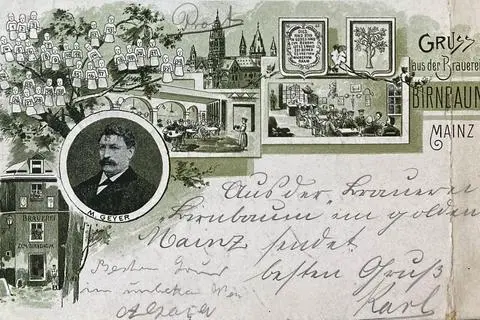 Prost
GRUSS
aus der Brauerei
BIRNBAUM
MAINZ
M. GEYER
BRAUEREI
ZUM BIRNBAUM
Aus der Brauerei
"Birnbaum" im golden
Mainz sendet
besten Gruß
Karl
Besten Gruß